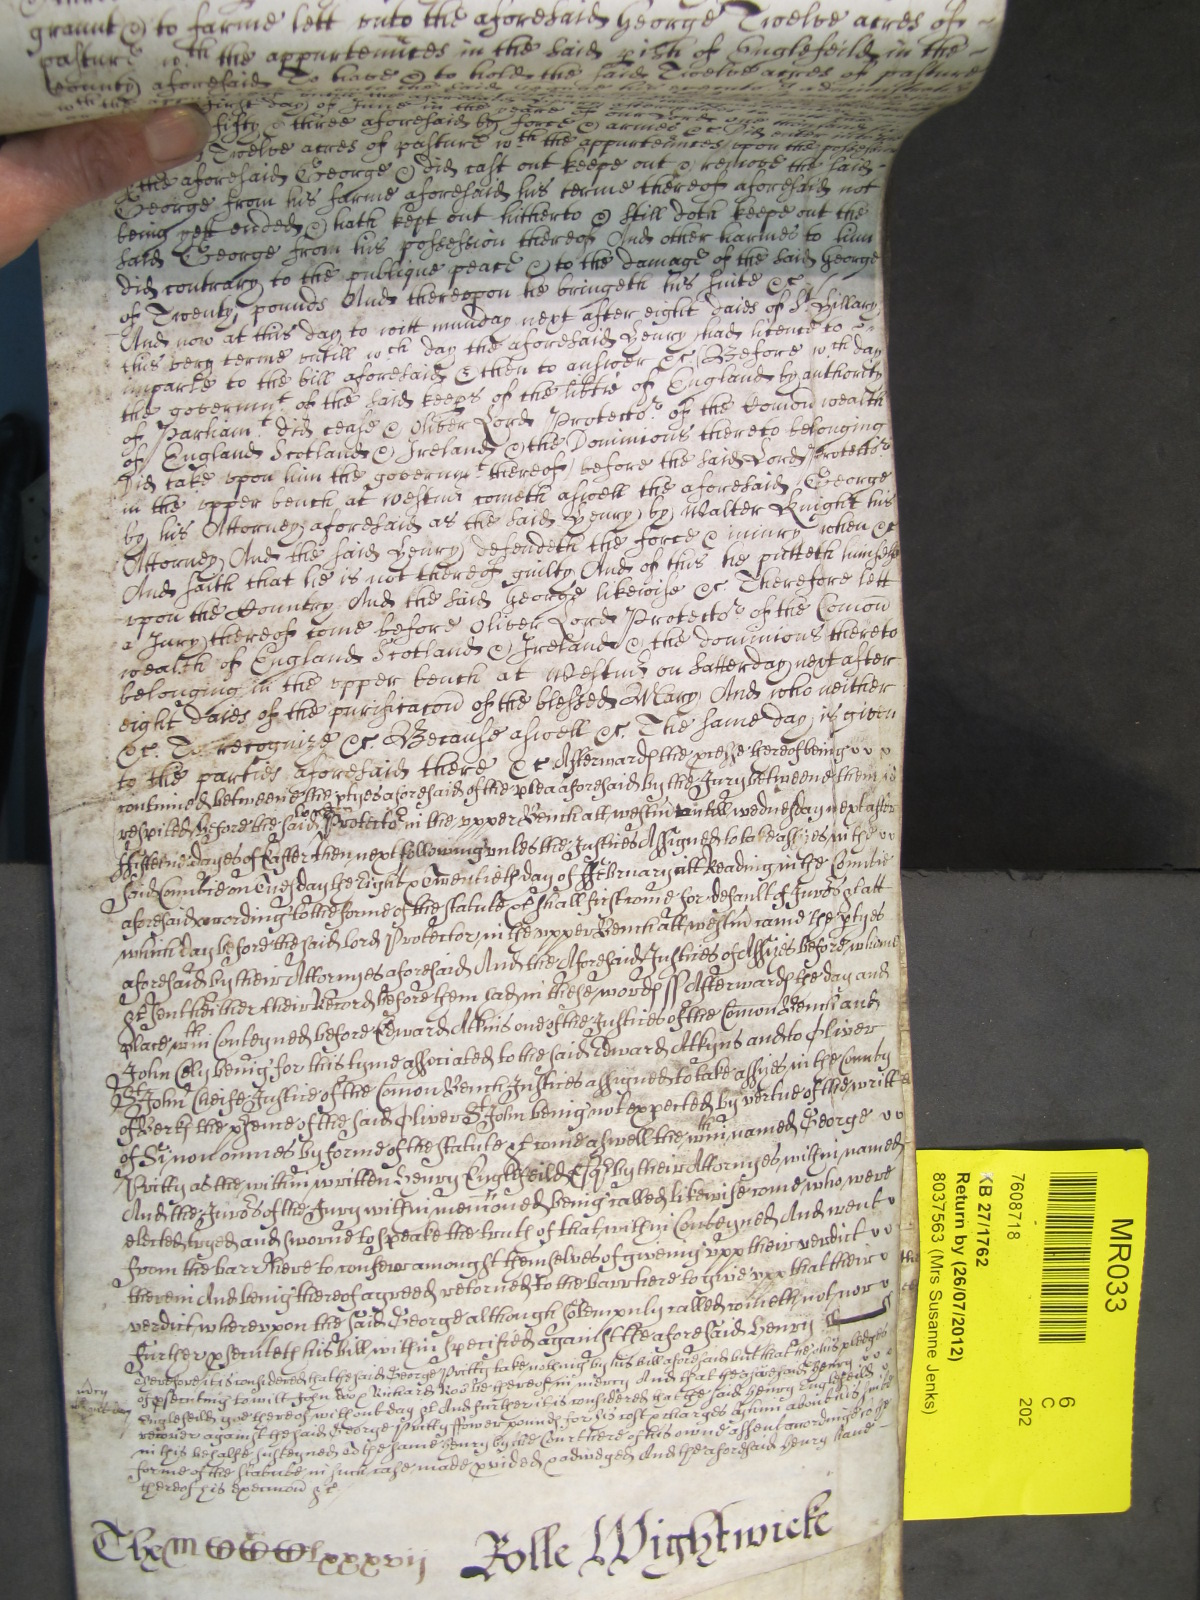 graunt & to farme lett unto the aforesaid George Twelve acres of
pasture wth the appurtenñces in the said pish of Englefeild in the
County aforesaid To have & to hold the said Twelve acres of pasture
wth the
first day of June in the yeare of our Lord one thousand
fifty & three aforesaid by force & armes &c Did enter into the
Twelve acres of pasture wth the appurtenñces upon the possession
of the aforesaid George & did cast out keepe out & remove the said
George from his farme aforesaid his terme thereof aforesaid not
being yett ended & hath kept out hitherto & still doth keepe out the
said George from his possession thereof And other harmes to him
did contrary to the publique peace & to the damage of the said George
of Twenty pounds And thereupon he bringeth his suite &c
And now at this day to witt munday next after eight daies of St Hillary
this very terme untill wch day the aforesaid Henry had licence to
imparle to the bill aforesaid & then to answer &c Before wch day
the governmt of the said keeps of the libtie of England by authority
of Parliamt did cease & Oliver Lord Protector of the Comon wealth
of England Scotland & Ireland & the Dominions thereto belonging
Did take upon him the governmt thereof before the said Lord Protector
in the upper bench at westmr cometh aswell the aforesaid George
by his Attorney aforesaid as the said Henry by Walter Knight his
Attorney And the said Henry defendeth the force & iniury when &c
And saith that he is not thereof guilty And of this he putteth himself
upon the Country And the said George likewise &c Therefore lett
a Jury thereof come before Oliver Lord Protector of the Comon
wealth of England Scotland & Ireland & the dominions thereto
belonging in the upper bench at Westmr on Satterday next after
eight daies of the purificacon of the blessed Mary And who neither
&c To recognize &c Because aswell &c The same day is given
to the parties aforesaid there &c Afterwards the pcesse thereof being
continued betweene the ptyes aforesaid of the plea aforesaid by the Jury betweene them is
respited before the said Lord Protector in the upper Bench att westmr untill wednesday next after
fifteene dayes of Easter then next following unles the Justices Assigned to take assizes in the
said Countie on Tuesday the Eight & Twentieth day of February att Reading in the Countie
aforesaid according to the forme of the statute &c shall first come for default of Jurors &c att
which day before the said Lord Protector in the upper Bench att westmr came the ptyes
aforesaid by their Attorneyes aforesaid And the Aforesaid Justices of Assizes before whome
&c sent hither their Record before them had in these words ss Afterwards the day and
place wthin Conteyned before Edward Atkins one of the Justices of the Comon Bench and
John Ely being for this tyme associated to the said Edward Atkyns and to Oliver
St John Cheife Justice of the Comon Bench Justices assigned to take assizes in the County
of Berks the psence of the said Oliver St John being not expected by vertue of the writt
of Si non omnes by forme of the statute &c come aswell the wthin named George
Pritty as the within written Henry Englefeild Esqr by their Attorneyes within named
And the Jurors of the Jury within menconed being called likewise come who were
elected tryed and sworne to speake the truth of that within Conteyned And went
from the barr there to confer amongst themselves of giveing upp their verdict
therein And being thereof agreed retorned to the barr here to give upp that their
verdict whereupon the said George although solempnly called cometh not nor
further psecuteth his bill within specified against the aforesaid Henry
Therefore it is considered that the said George Pritty take nothing by his bill aforesaid but that he & his pledges
of psecuting to witt John Doo & Richard Roo be thereof in mercy And that the aforesaid Henry
Englefeild goe thereof without day &c And further it is considered that the said Henry Englefeild
recover against the said George Pritty Fower pounds for his costs & charges by him about his suite
in this behalfe susteyned to the same Henry by the Court here of his owne assent according to the
forme of the statute in such case made & pvided adiudged And the aforesaid Henry have
thereof his execucon &c
mercy
Rolle Wightwicke
MR033
6
C
202
7608718
KB 27/1762
Return by (26/07/2012)
8037563 (Mrs Susanne Jenks)